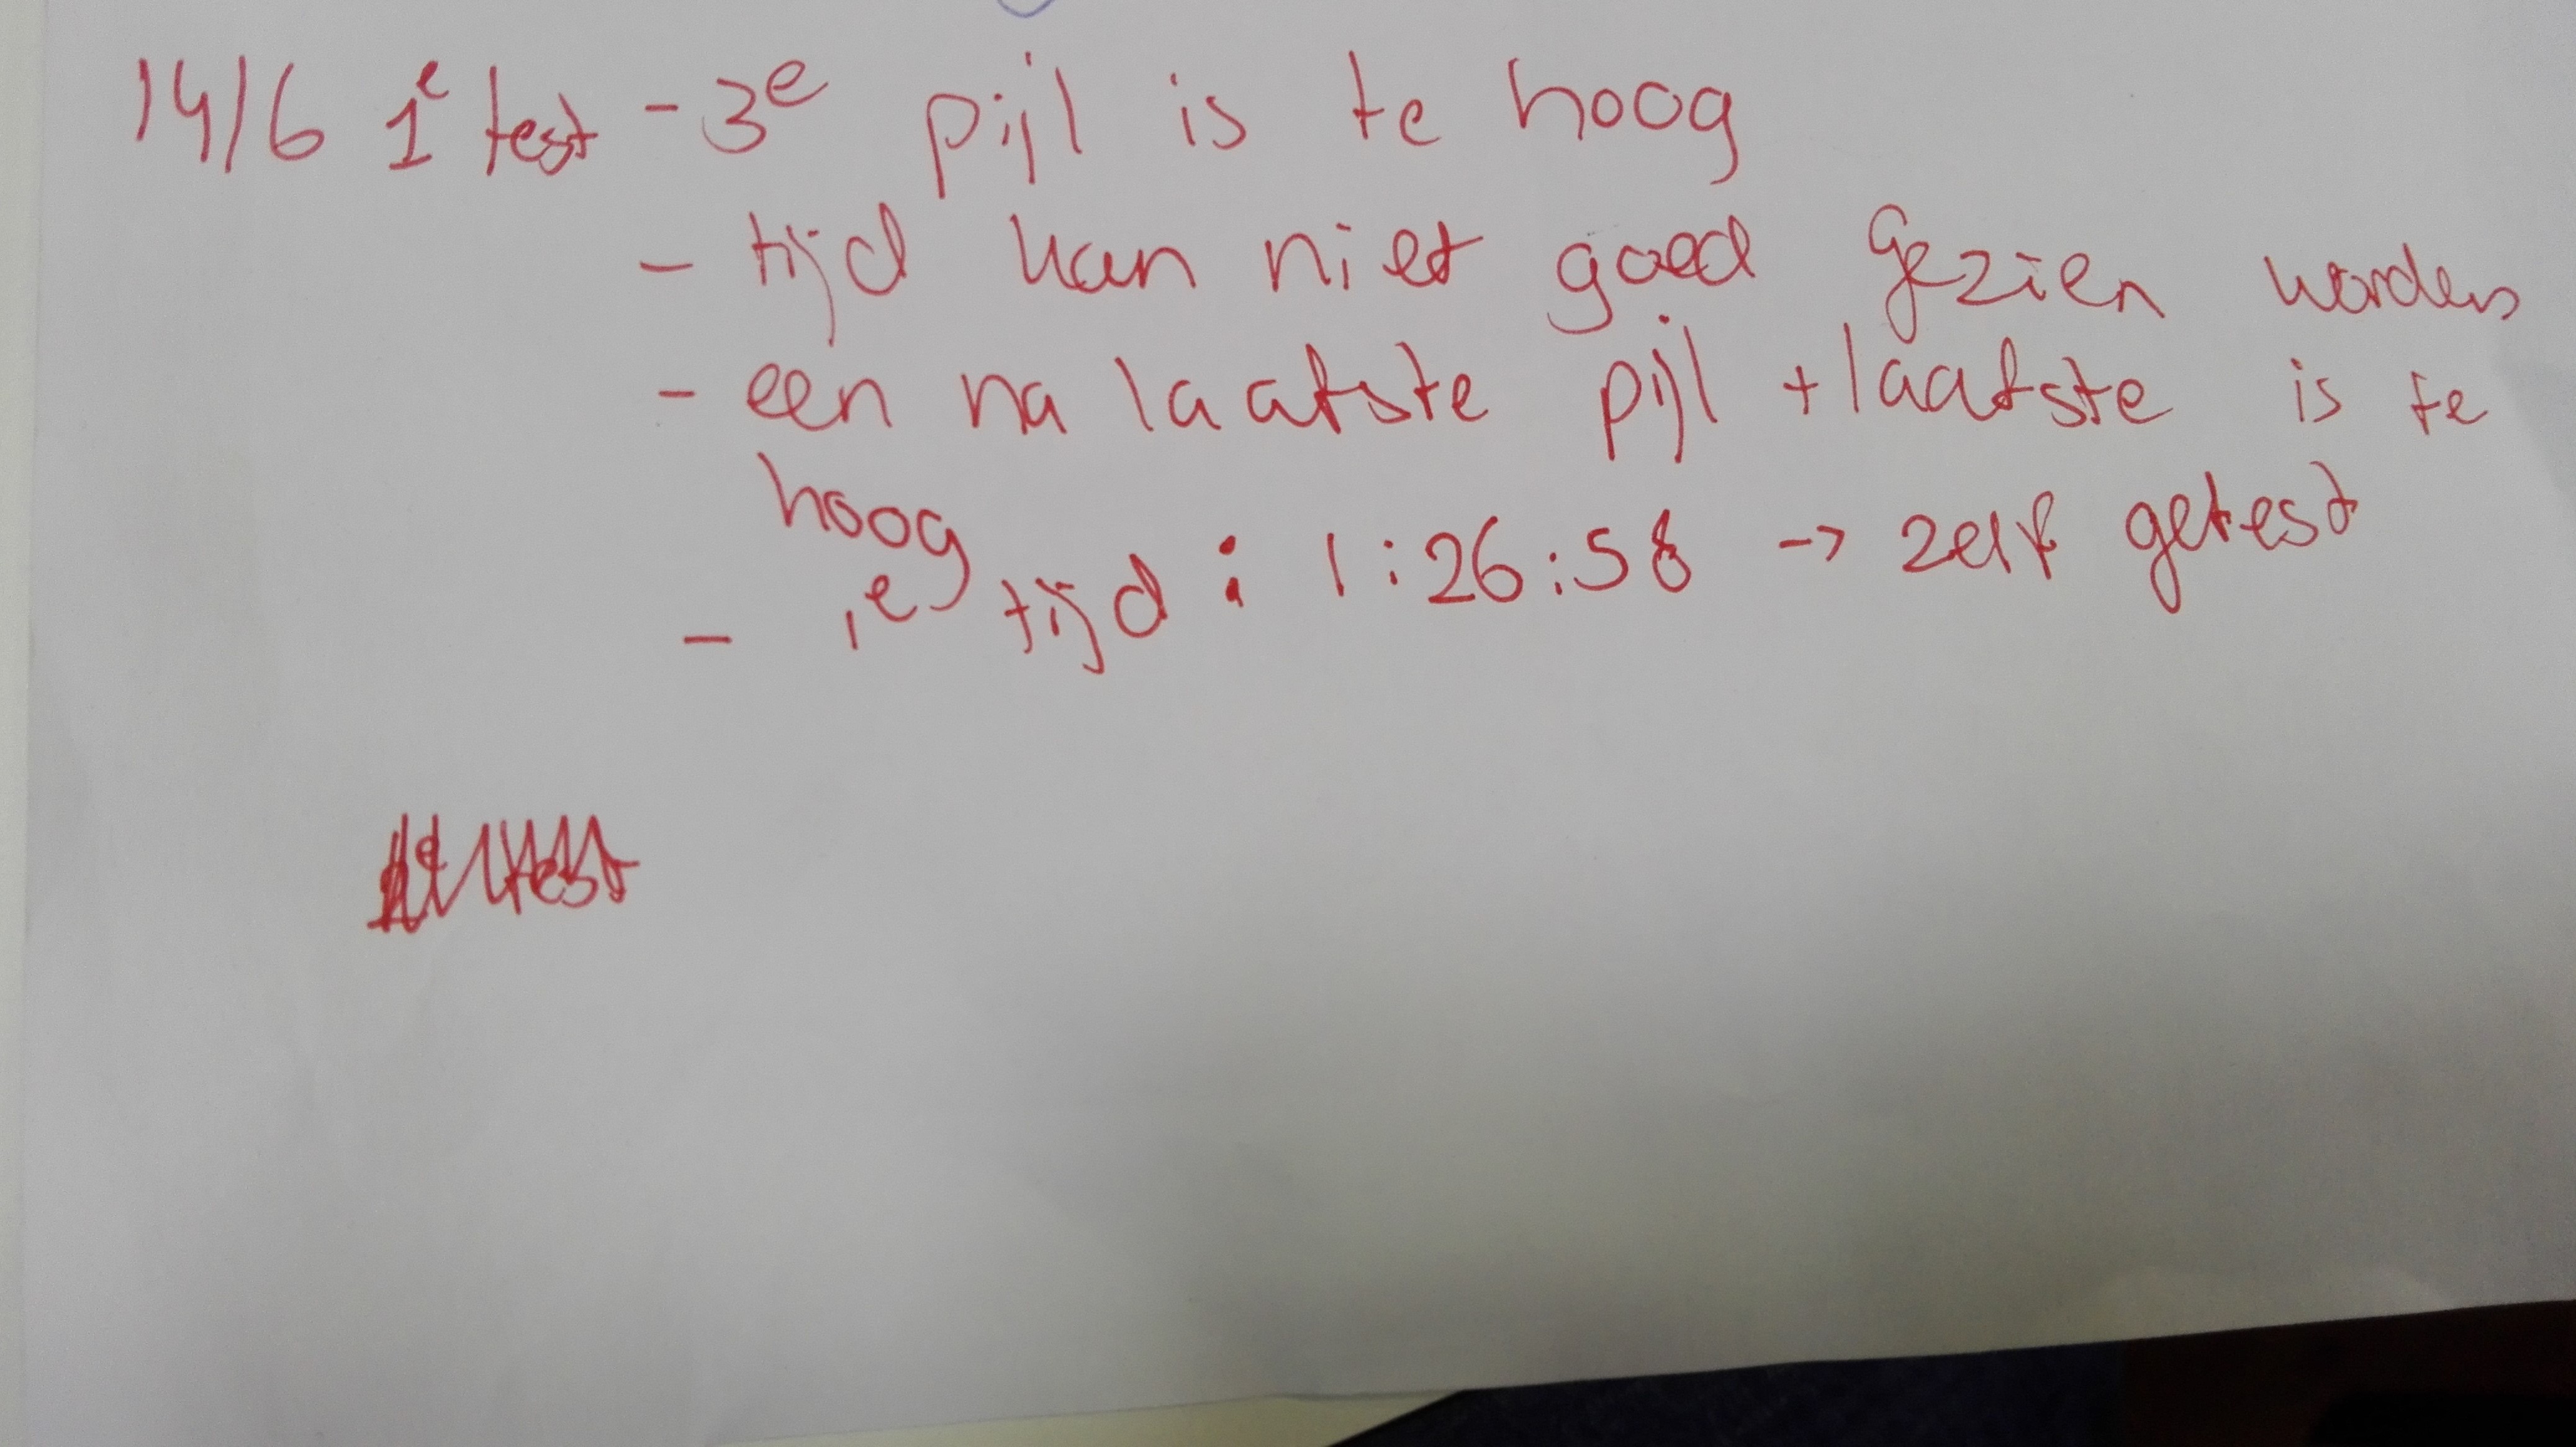 14/6 1e test - 3e pijl is te hoog
- tijd kan niet goed gezien worden
- een na laatste pijl + laatste is te
hoog
- 1e tijd : 1:26:58 -> zelf getest
test